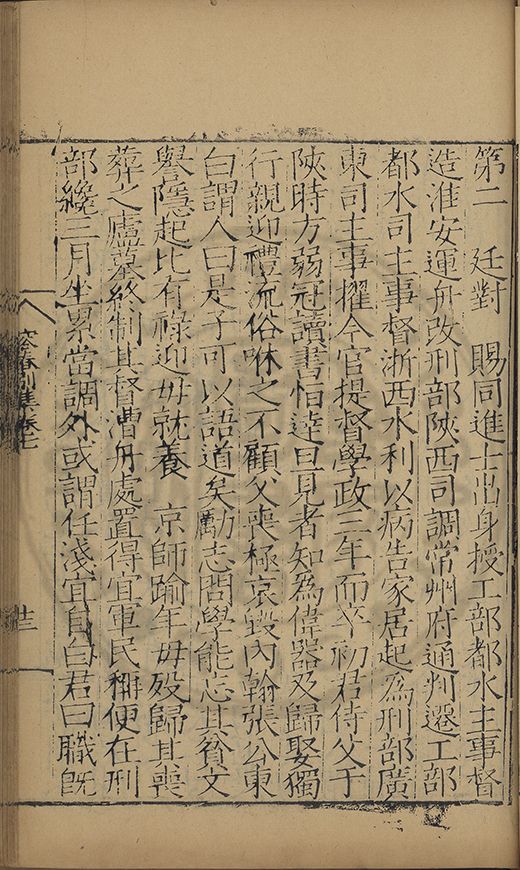 第二　廷對　賜同進士出身授工部都水主事督
造淮安運舟改刑部陝西司調常州府通判遷工部
都水司主事督浙西水利以病告家居起為刑部廣
東司主事擢今官提督學政三年而卒初君侍父于
陝時方弱冠讀書恒達旦見者知為偉器及歸娶獨
行親迎禮流俗咻之不顧父喪極哀毀內翰張公東
白謂人曰是子可以語道矣勵志問學能忘其貧文
譽隱起比有祿迎毋就養　京師踰年毋歿歸其喪
葬之廬墓終制其督漕舟處置得宜軍民稱便在刑
部纔三月坐累當調外或謂任淺宜自白君曰職旣
容春別集卷七
十三